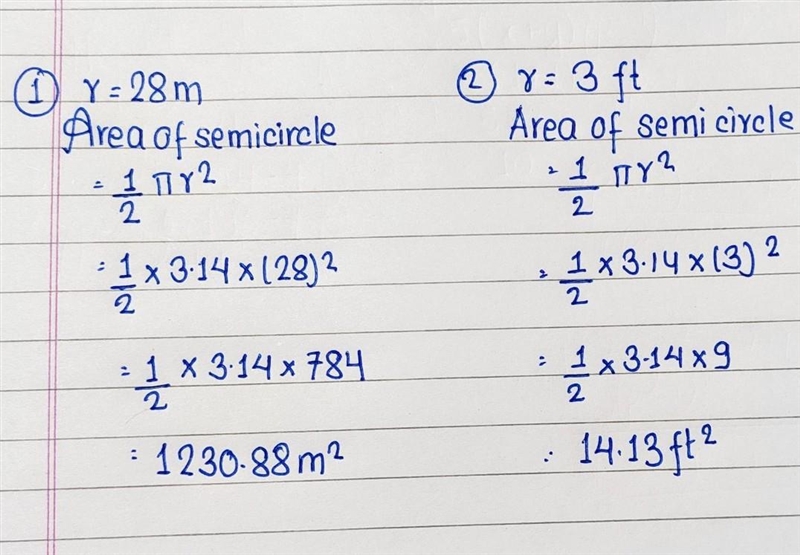 ① r = 28 m
Area of semicircle
= 1/2 πr²
= 1/2 × 3·14 × (28)²
= 1/2 × 3·14 × 784
= 1230·88 m²
② r = 3 ft
Area of semi circle
= 1/2 πr²
= 1/2 × 3·14 × (3)²
= 1/2 × 3·14 × 9
∴ 14·13 ft²